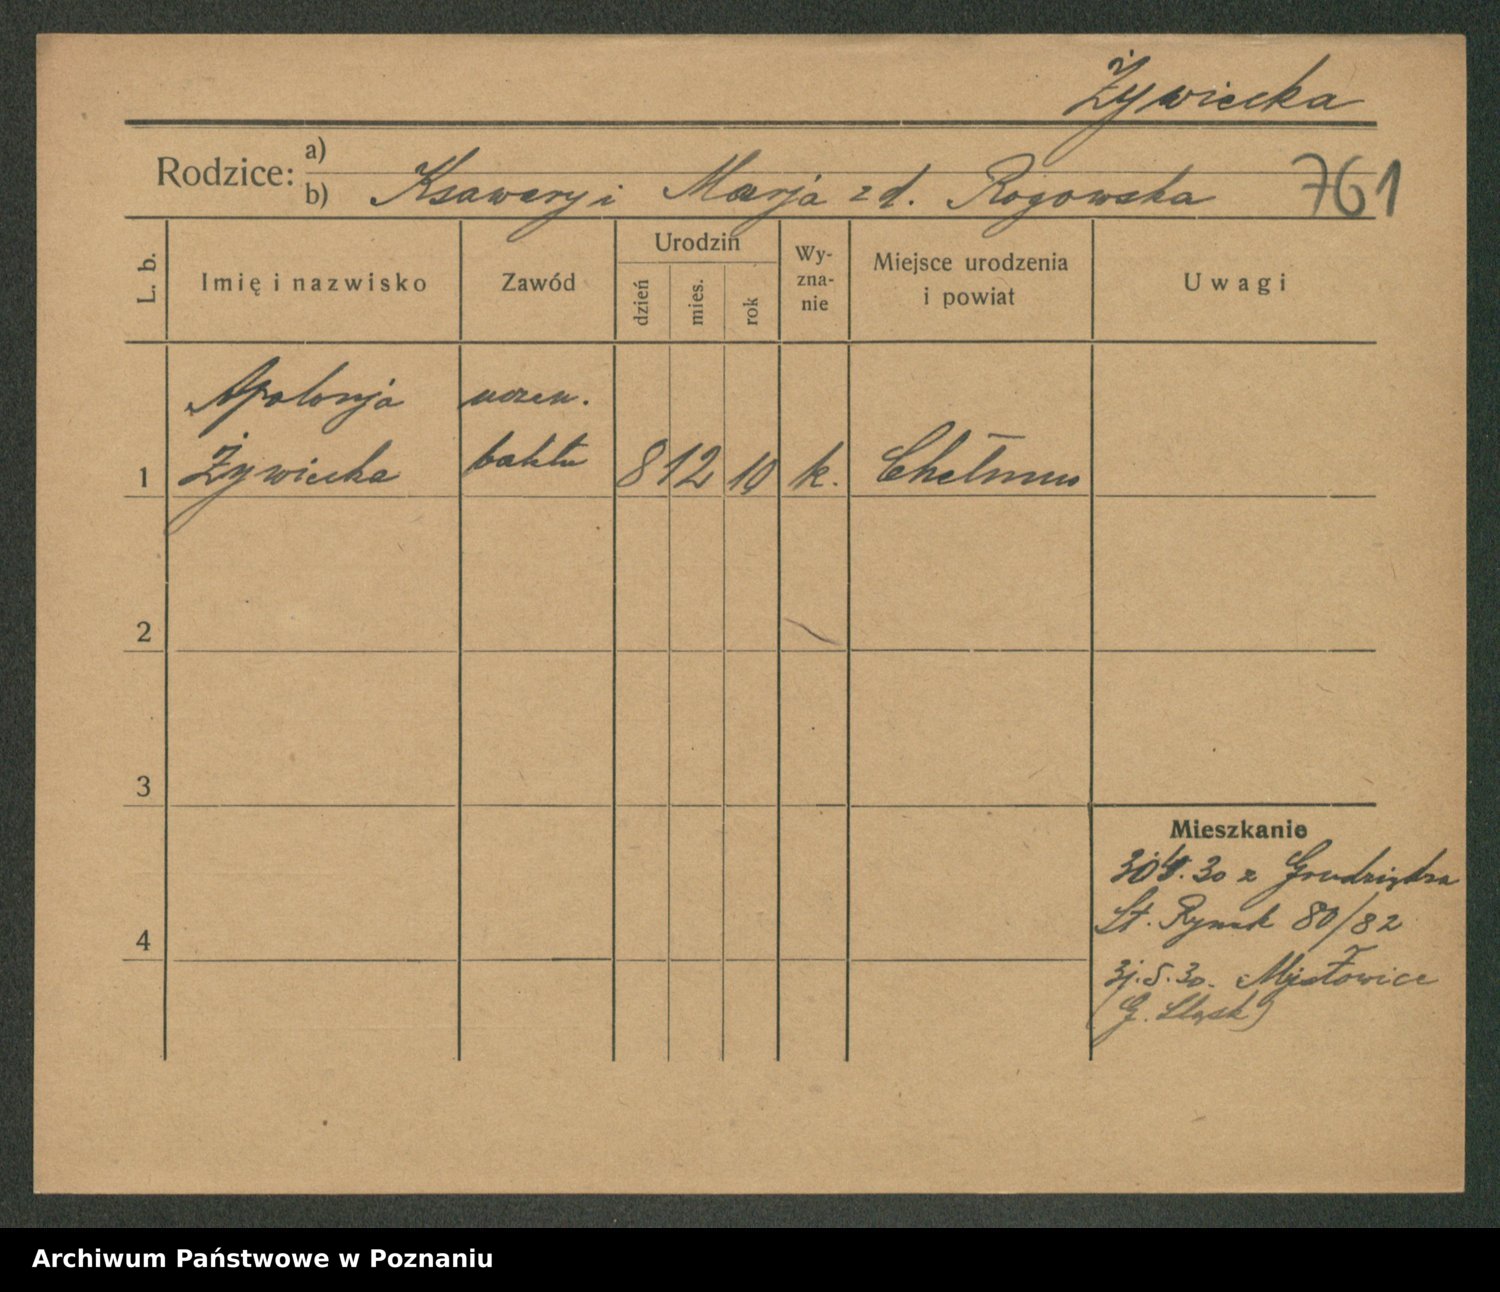 Żywiecka
Rodzice: a)
b) Ksawery i Marja zd. Rogowska 761
L. b. Imię i nazwisko Zawód Urodzin dzień mies. rok Wy-zna-nie Miejsce urodzenia i powiat Uwagi
Apolonja uczen.
1 Żywiecka 8 12 10 k. Chełmno
2
3
Mieszkanie
30 30 z Grudziądza
St. Rynek 80/82
4
31.5.30. Mysłowice
(G. Śląsk)
Archiwum Państwowe w Poznaniu